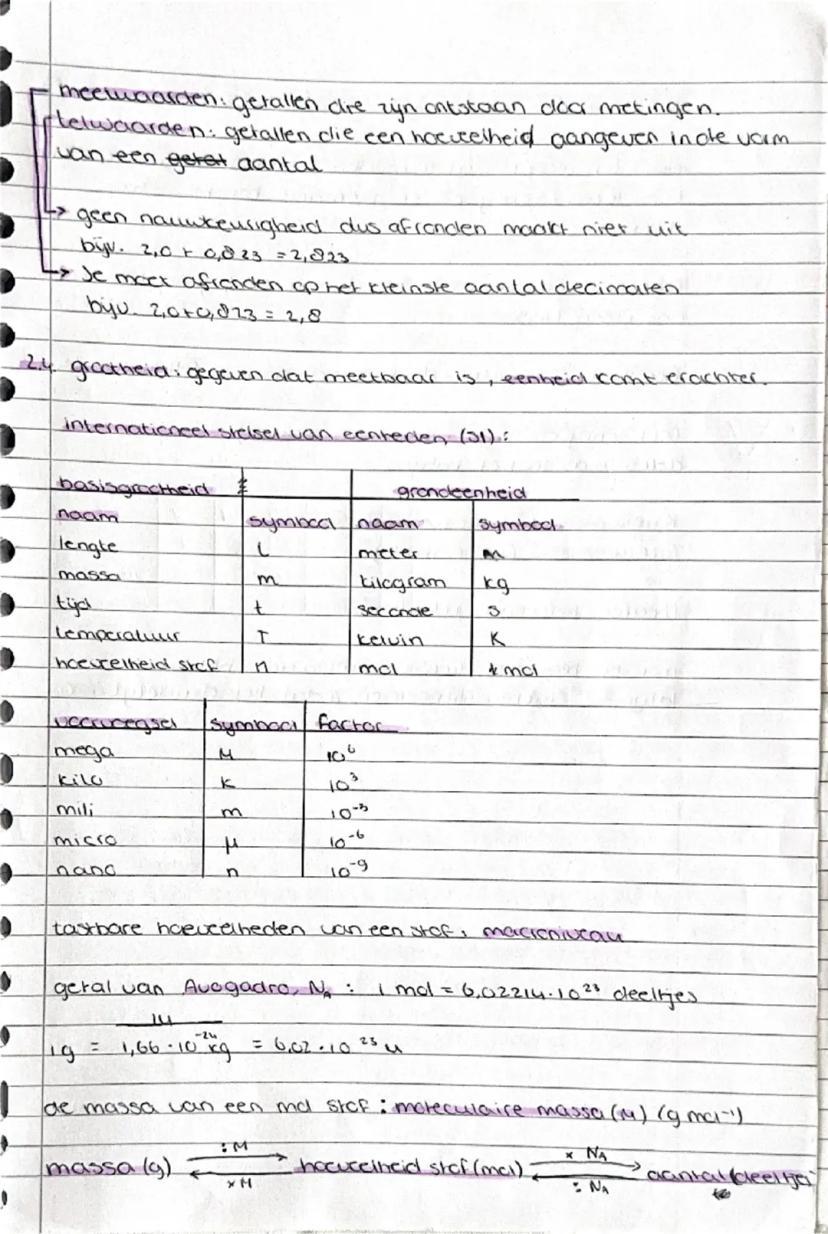 meetwaarden: getallen die zijn ontstaan door metingen.
telwaarden: getallen die een hoeveelheid aangeven in de vorm
van een getal aantal
→ geen nauwkeurigheid dus afronden maakt niet uit
bijv. 2,0 + 0,823 = 2,823
→ Je moet afronden op het kleinste aantal decimalen
bijv. 2,0+0,823 = 2,8
2.4 grootheid: gegeven dat meetbaar is, eenheid komt erachter.
internationeel stelsel van eenheden (SI):
basisgrootheid grondeenheid
naam symbool naam symbool
lengte l meter m
massa m kilogram kg
tijd t seconde s
temperatuur T kelvin K
hoeveelheid stof n mol mol
voorvoegsel symbool factor
mega M 10⁶
kilo k 10³
mili m 10⁻³
micro μ 10⁻⁶
nano n 10⁻⁹
tastbare hoeveelheden van een stof: macroniveau
getal van Avogadro, NA : 1 mol = 6,02214·10²³ deeltjes
1u
1g = 1,66·10⁻²⁴ kg = 6,02·10²³ u
de massa van een mol stof: moleculaire massa (M) (g mol⁻¹)
massa (g) : M → hoeveelheid stof (mol) × NA → aantal deeltjes
← × M ← : NA